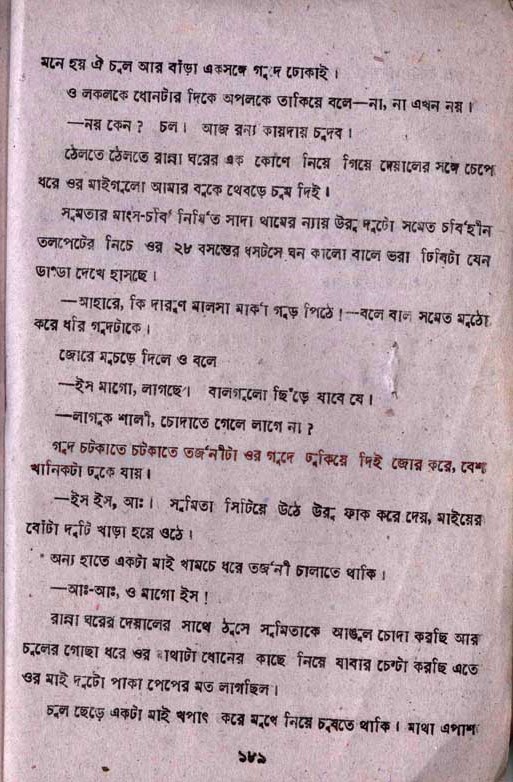 মনে হয় ঐ চুল আর বাঁড়া একসঙ্গে গুদে ঢোকাই।
ও লকলকে ধোনটার দিকে অপলকে তাকিয়ে বলে—না, না এখন নয়।
—নয় কেন? চল। আজ রান্য কায়দায় চুদব।
ঠেলতে ঠেলতে রান্না ঘরের এক কোণে নিয়ে গিয়ে দেয়ালের সঙ্গে চেপে
ধরে ওর মাইগুলো আমার বুকে থেবড়ে চুমু দিই।
সুমিতার মাংস-চর্বি নির্মিত সাদা থামের ন্যায় উরু দুটো সমেত চর্বিহীন
তলপেটের নিচে ওর ২৮ বসন্তের ধসটসে ঘন কালো বালে ভরা ঢিবিটা যেন
ভান্ডা দেখে হাসছে।
—আহারে, কি দারুণ মালসা মার্কা গুড় পিঠে!—বলে বাল সমেত মুঠো
করে ধরি গুদটাকে।
জোরে মুচড়ে দিলে ও বলে
—ইস মাগো, লাগছে। বালগুলো ছিঁড়ে যাবে যে।
—লাগুক শালী, চোদাতে গেলে লাগে না?
গুদ চটকাতে চটকাতে তর্জনীটা ওর গুদে ঢুকিয়ে দিই জোর করে, বেশ
খানিকটা ঢুকে যায়।
—ইস ইস, আঃ। সুমিতা সিটিয়ে উঠে উরু ফাক করে দেয়, মাইয়ের
বোঁটা দুটি খাড়া হয়ে ওঠে।
অন্য হাতে একটা মাই খামচে ধরে তর্জনী চালাতে থাকি।
—আঃ-আঃ, ও মাগো ইস!
রান্না ঘরের দেয়ালের সাথে ঠুসে সুমিতাকে আঙুল চোদা করছি আর
চুলের গোছা ধরে ওর মাথাটা ধোনের কাছে নিয়ে যাবার চেষ্টা করছি এতে
ওর মাই দুটো পাকা পেপের মত লাগছিল।
চুল ছেড়ে একটা মাই খপাৎ করে মুখে নিয়ে চুষতে থাকি। মাথা এপাশ
১৮৯